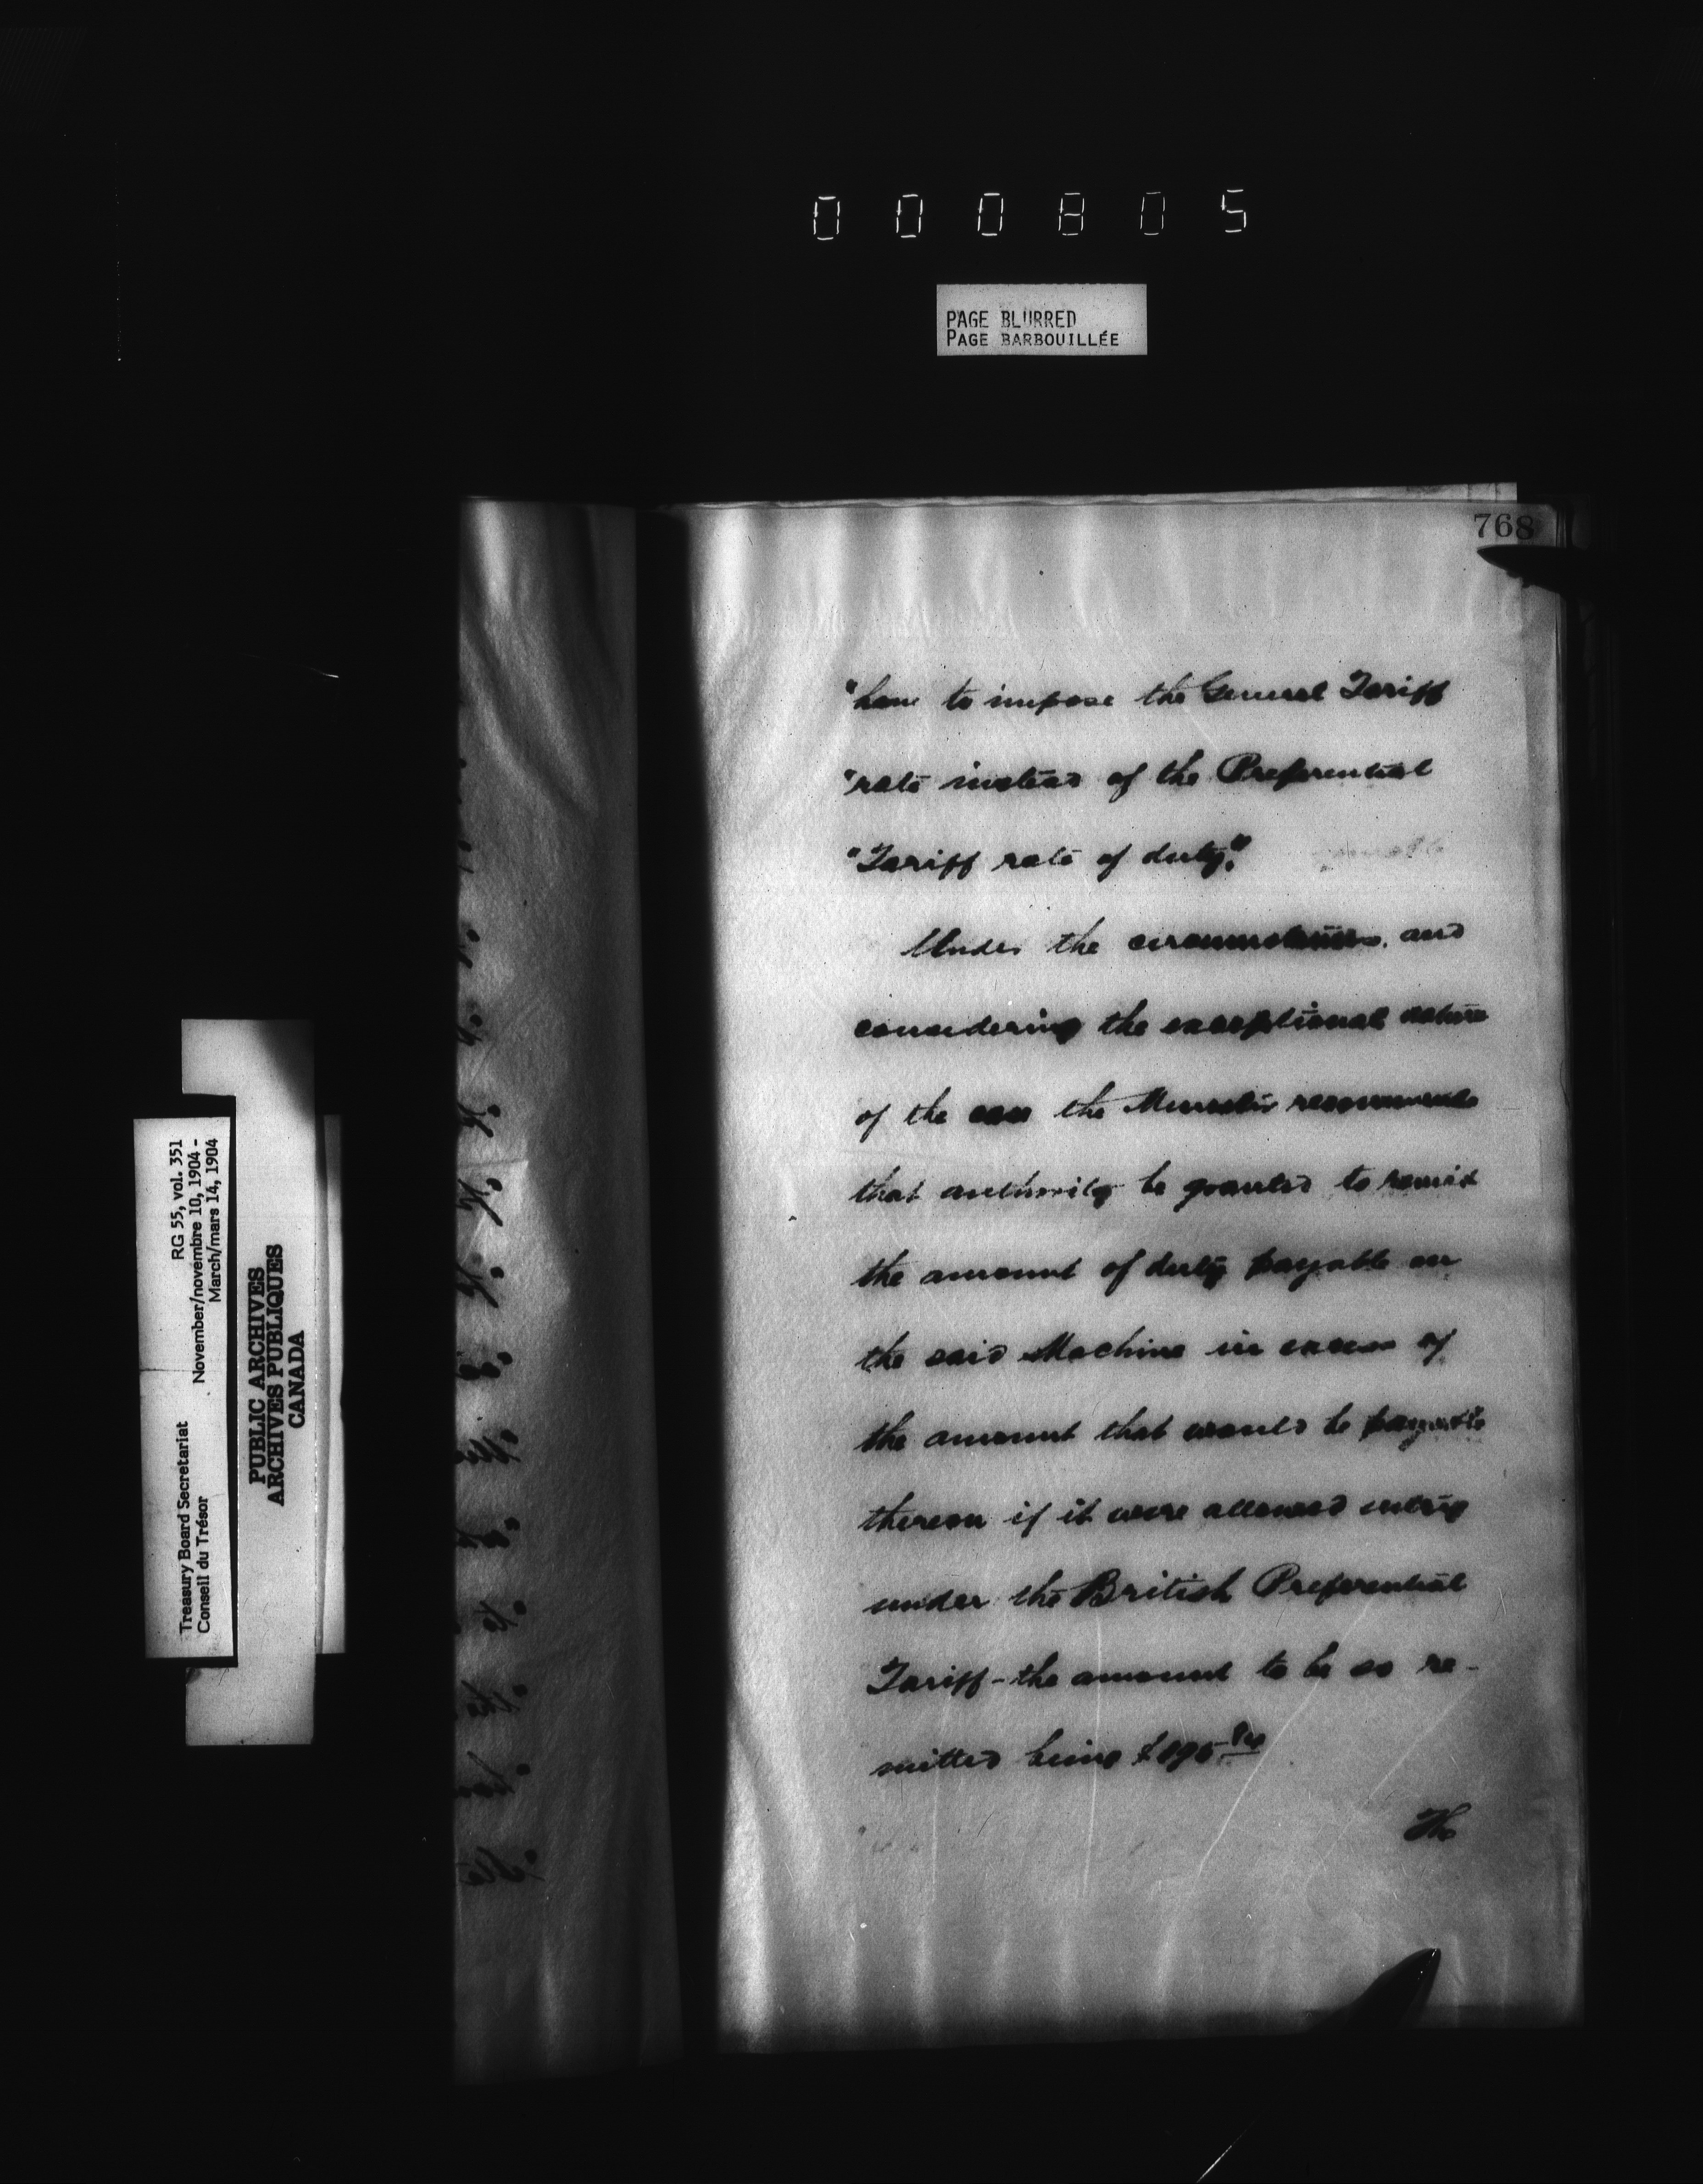 000805
PAGE BLURRED
PAGE BARBOUILLÉE
768
"have to impose the General Tariff
"rate instead of the Preferential
"Tariff rate of duty."
Under the circumstances, and
considering the exceptional nature
of the case the Minister recommends
that authority be granted to remit
the amount of duty payable on
the said Machine in excess of
the amount that would be payable
thereon if it were allowed entry
under the British Preferential
Tariff - the amount to be so re-
mitted being
The
Treasury Board Secretariat RG 55, vol. 351
Conseil du Trésor November/novembre 10, 1904 -
March/mars 14, 1904
PUBLIC ARCHIVES
ARCHIVES PUBLIQUES
CANADA